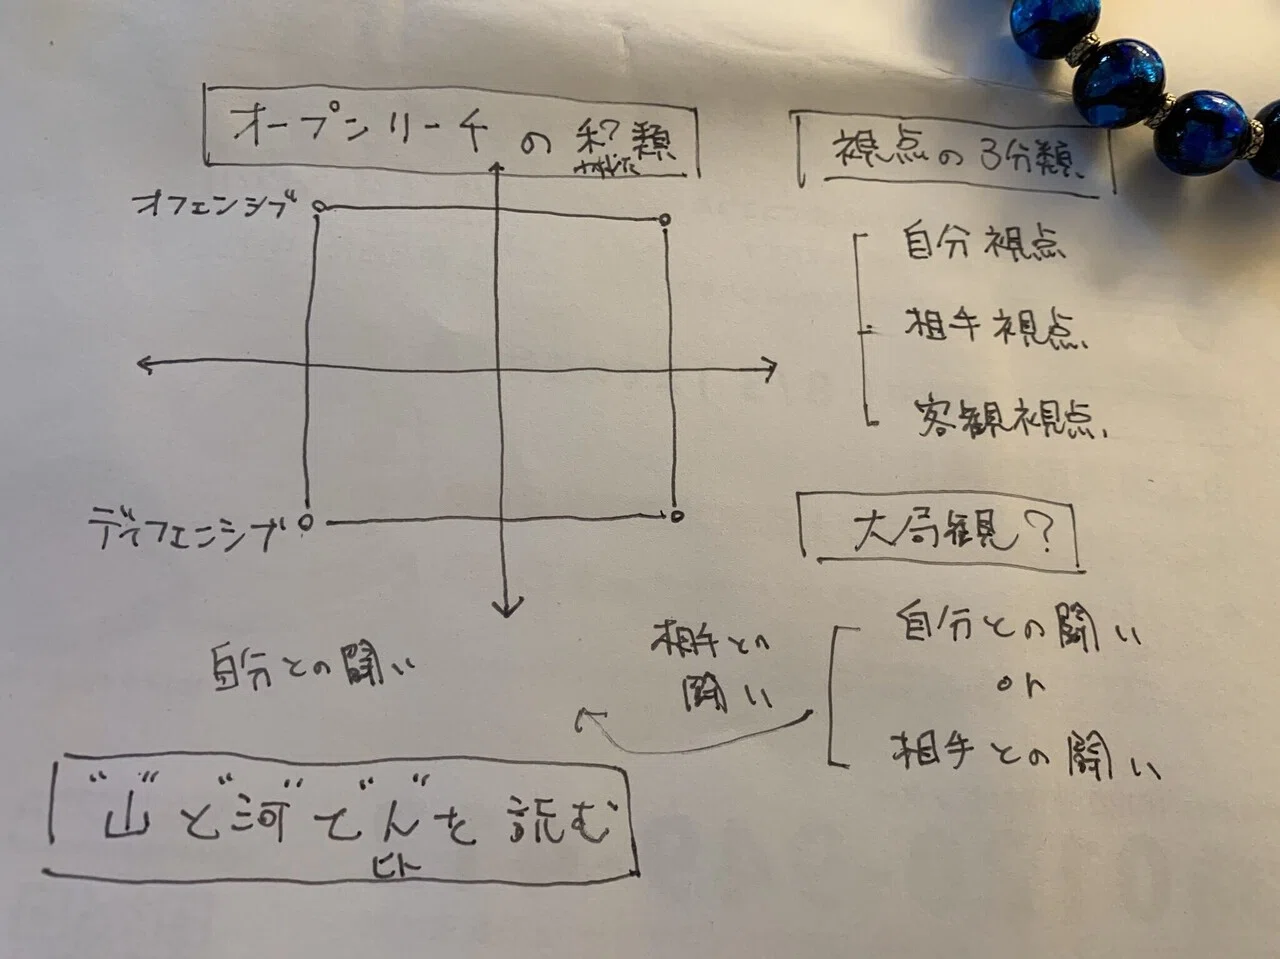 オープンリーチの種類
オフェンシブ
ディフェンシブ
自分との闘い
相手との
闘い
"山"と"河"で"ん"を読む
ヒト
視点の3分類
自分視点
相手視点
客観視点
大局観?
自分との闘い
or
相手との闘い